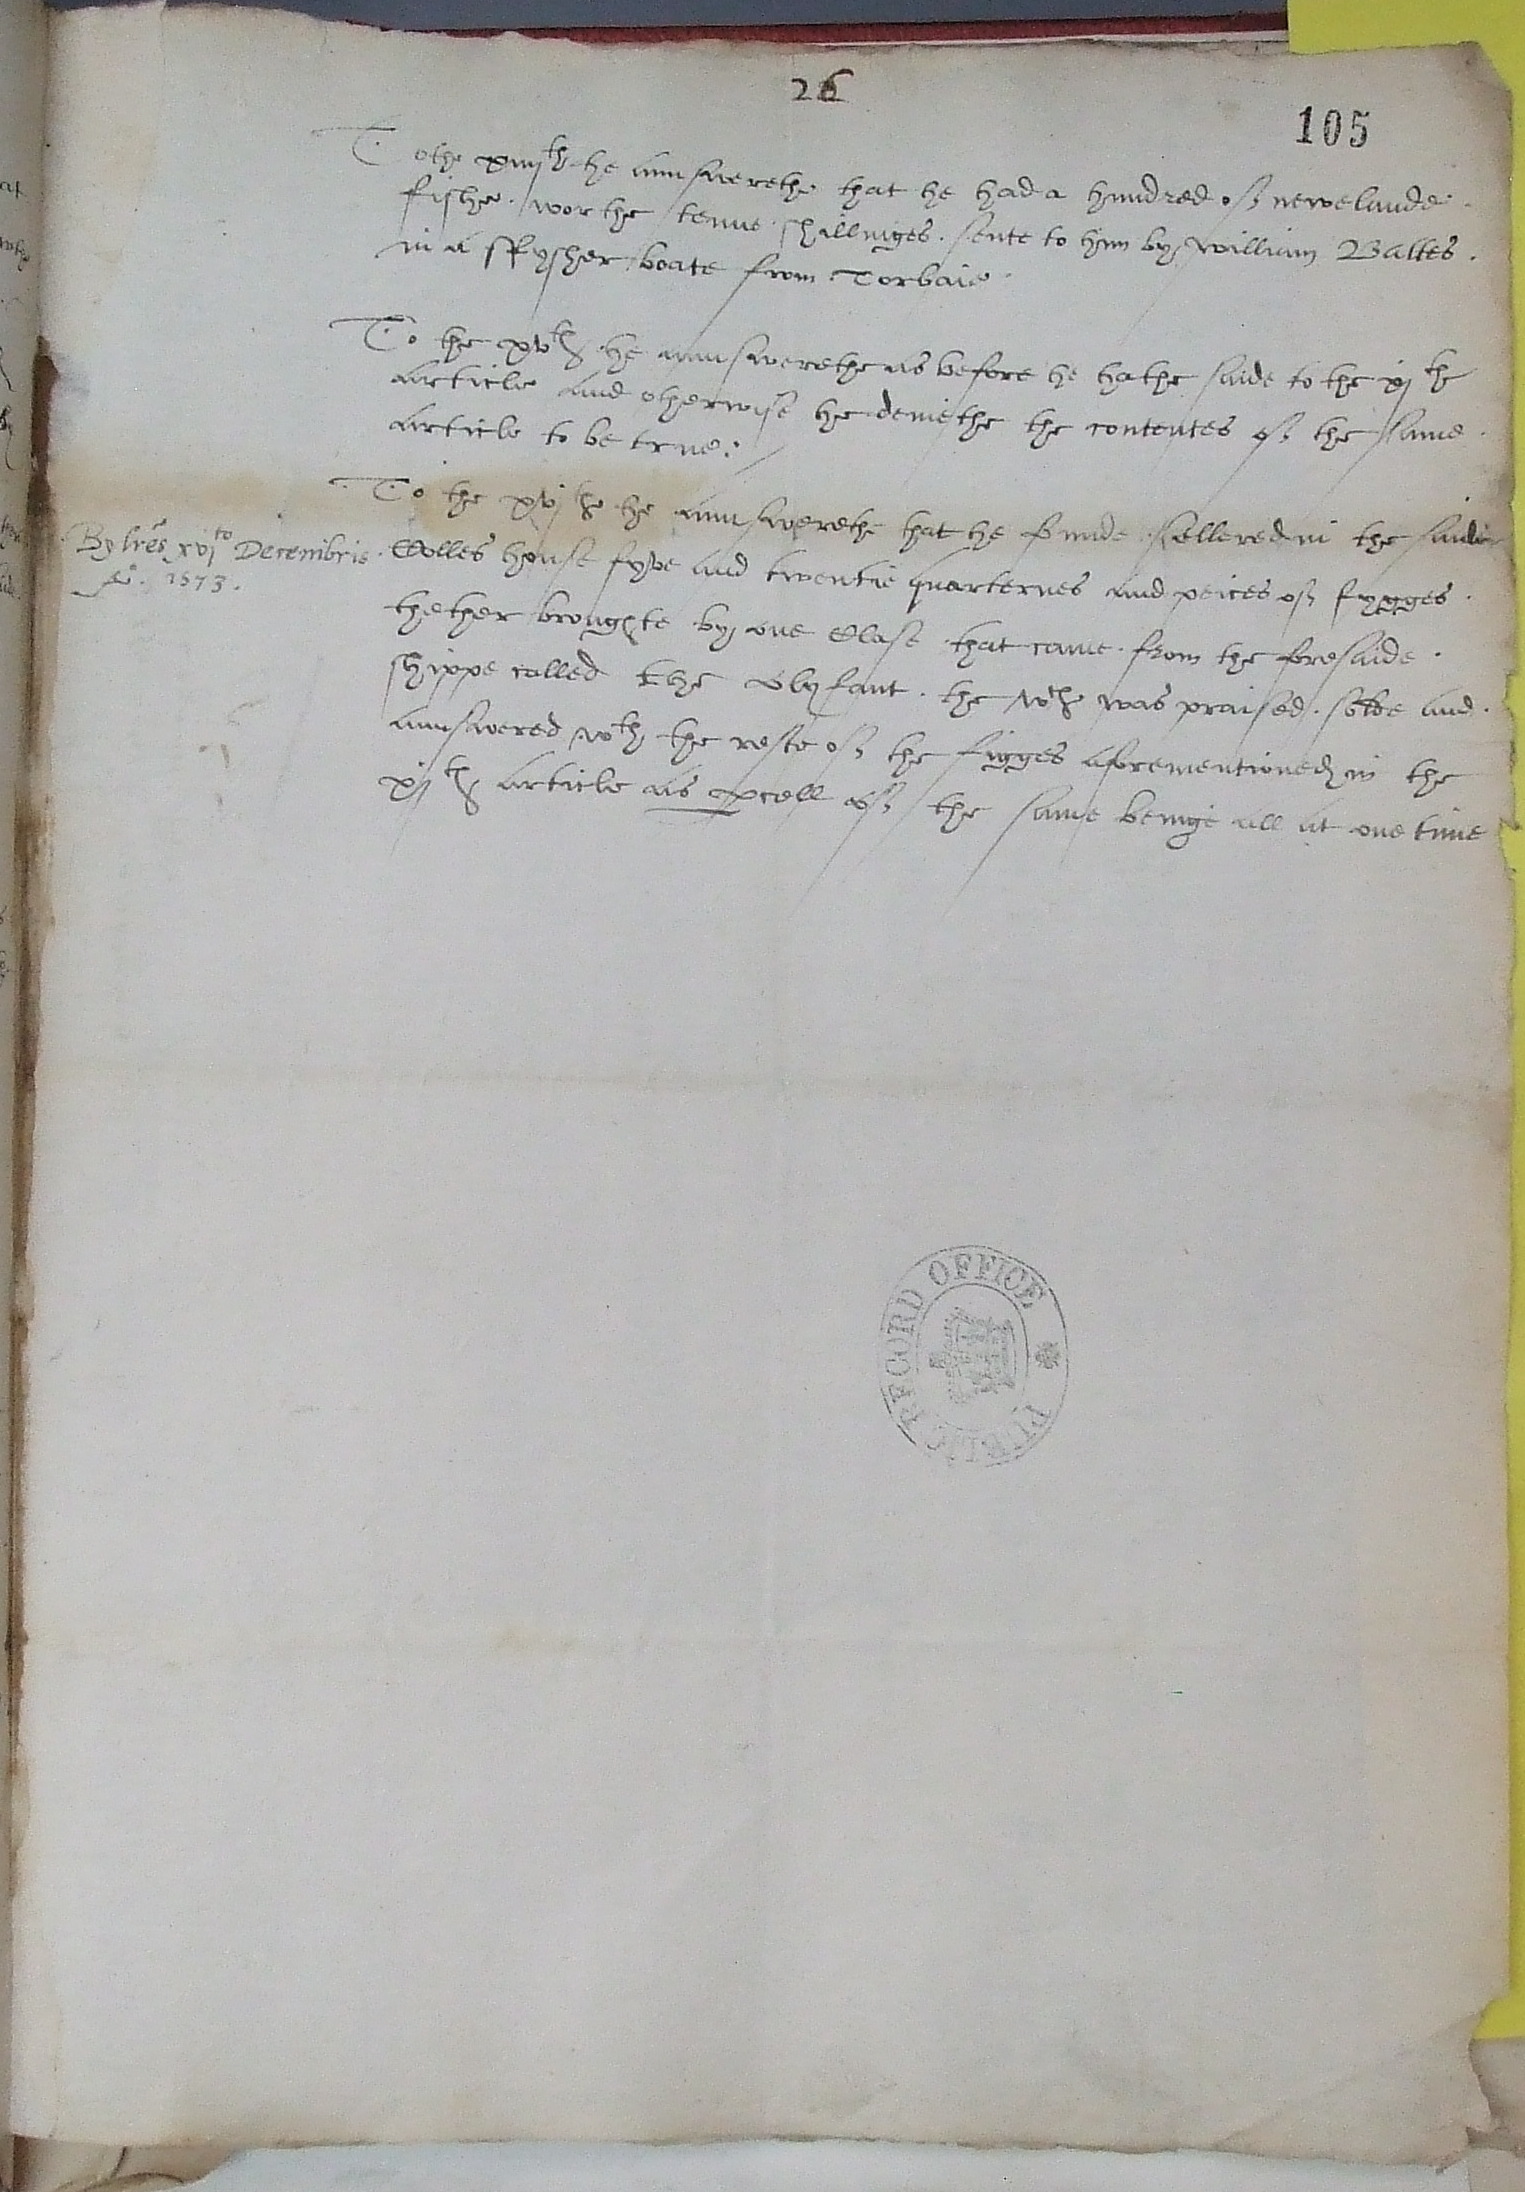 26
105
To the xiiijth he aunswerethe that he had a hundred of newelande
fishe worthe tenne shillinges sente to him by william Battes
in a ffysher boate from Torbaie
To the xvth he aunswerethe as before he hathe saide to the xijth
Article and otherwise he deniethe the contentes of the same
Article to be true:
To the xvjth he aunswerethe that he funde sellered in the saide
By lres xvito Decembris
Ao. 1573.
Colles house fyve and twentie quarternes and peices of fygges
thether broughte by one Close that came from the foresaide
shippe called the Olyfant the wch was praised solde and
aunswered wth the reste of the figges aforementioned in the
xijth Article as pcell of the same beinge all at one time
PUBLIC RECORD OFFICE